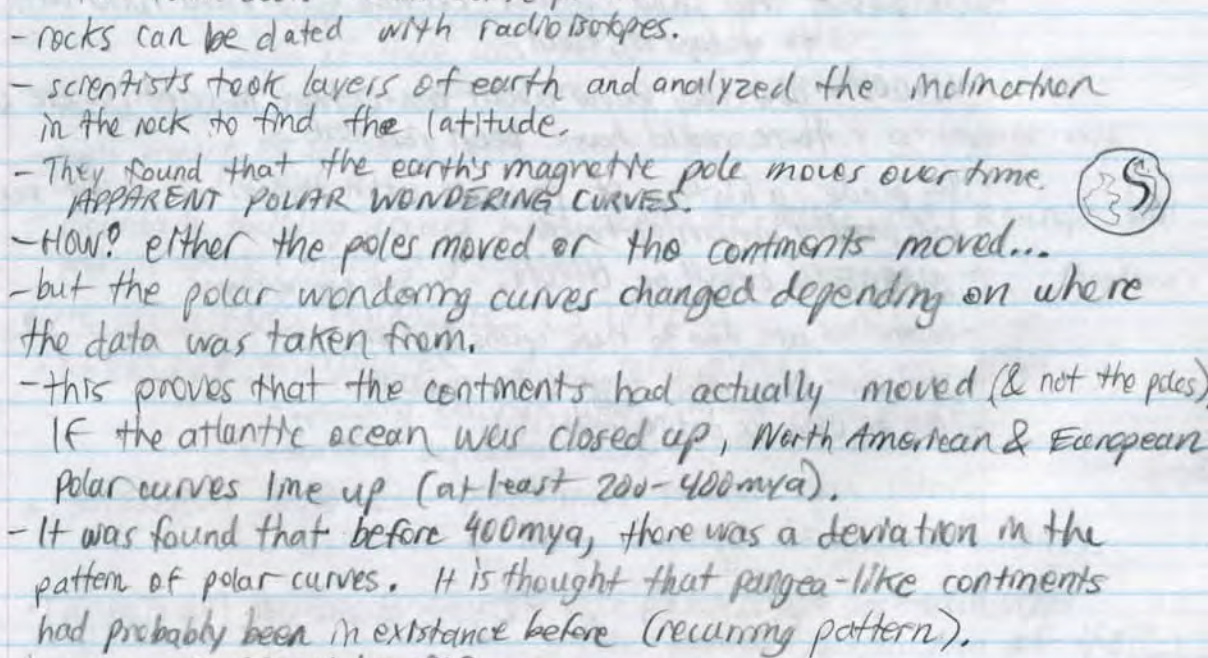 - rocks can be dated with radioisotopes.
- scientists took layers of earth and analyzed the inclination
in the rock to find the latitude.
- They found that the earth's magnetic pole moves over time.
APPARENT POLAR WONDERING CURVES.
- How? either the poles moved or the continents moved...
- but the polar wondering curves changed depending on where
the data was taken from.
- this proves that the continents had actually moved (& not the poles)
IF the atlantic ocean was closed up, North American & European
polar curves line up (at least 200-400mya).
- It was found that before 400mya, there was a deviation in the
pattern of polar curves. It is thought that pangea-like continents
had probably been in existance before (recurring pattern).